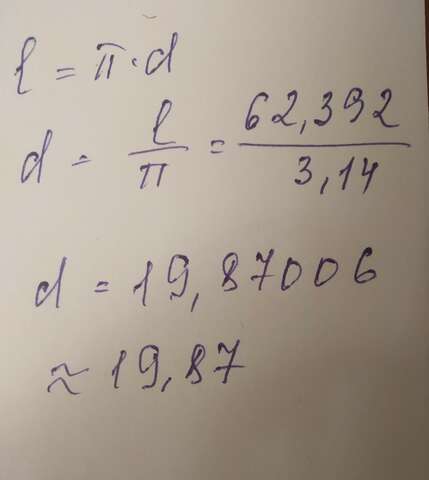 l = π · d
d = l/π = 62,392/3,14
d = 19,87006
≈ 19,87